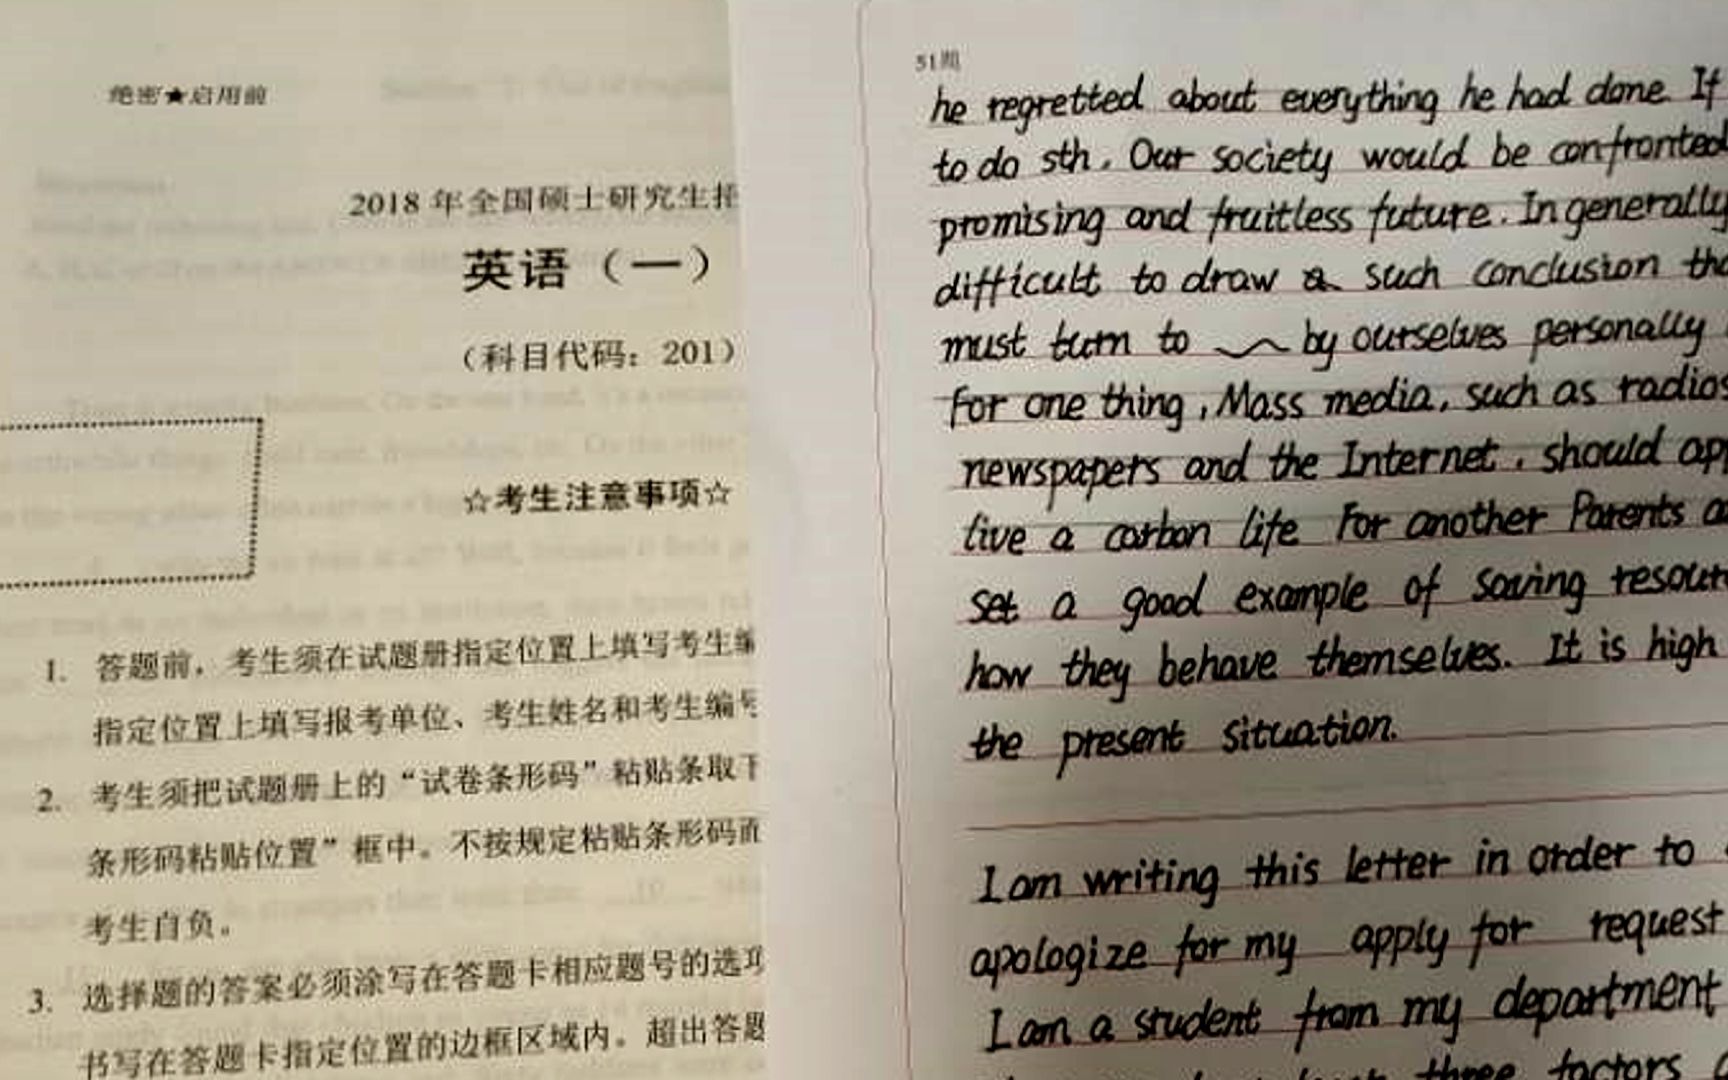 绝密★启用前
2018 年全国硕士研究生招
英语（一）
（科目代码：201）
☆考生注意事项☆
1. 答题前，考生须在试题册指定位置上填写考生编
指定位置上填写报考单位、考生姓名和考生编号
2. 考生须把试题册上的“试卷条形码”粘贴条取下
条形码粘贴位置”框中。不按规定粘贴条形码而
考生自负。
3. 选择题的答案必须涂写在答题卡相应题号的选项
书写在答题卡指定位置的边框区域内。超出答题
51题
he regretted about everything he had done. If
to do sth. Our society would be confronted
promising and fruitless future. In generally
difficult to draw a such conclusion tha
must turn to by ourselves personally
For one thing, Mass media, such as radios
newspapers and the Internet, should app
live a carbon life For another Parents a
set a good example of saving resour
how they behave themselves. It is high
the present situation.
I am writing this letter in order to
apologize for my apply for request
I am a student from my department
three factors